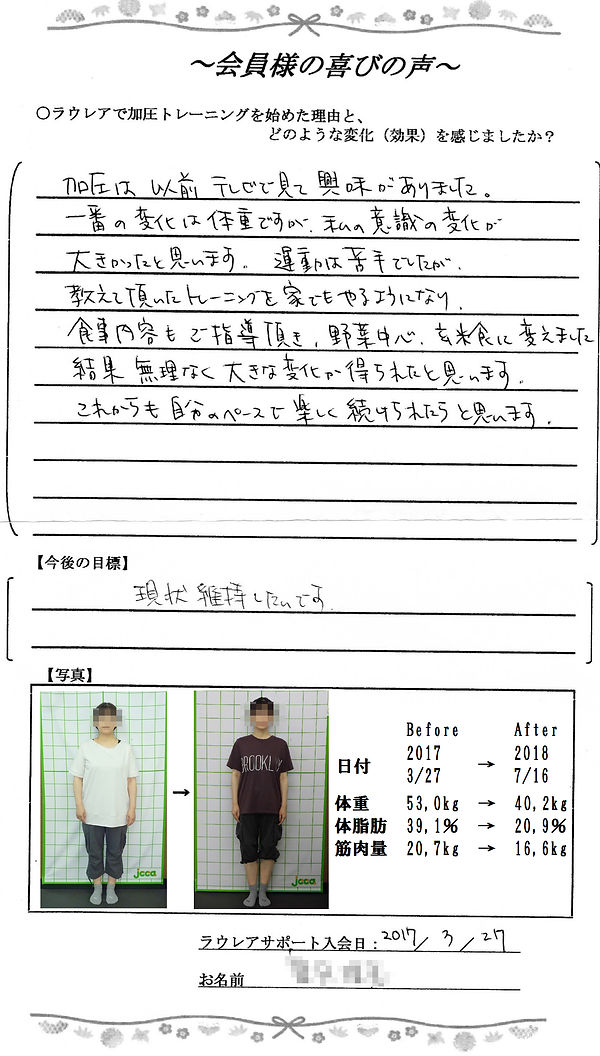 ～会員様の喜びの声～
○ラウレアで加圧トレーニングを始めた理由と、
どのような変化（効果）を感じましたか？
加圧は 以前 テレビで見て 興味がありました。
一番の変化は体重ですが、私の意識の変化が
大きかったと思います。 運動は苦手でしたが、
教えて頂いたトレーニングを家でもやるようになり、
食事内容もご指導頂き、野菜中心、玄米食に変えました
結果 無理なく大きな変化が得られたと思います。
これからも自分のペースで楽しく続けられたらと思います。
【今後の目標】
現状維持したいです。
【写真】
Before After
日付 2017 3/27 → 2018 7/16
体重 53,0kg → 40,2kg
体脂肪 39,1% → 20,9%
筋肉量 20,7kg → 16,6kg
jcca
BROOKLYN
jcca
→
ラウレアサポート入会日：2017/3/27
お名前